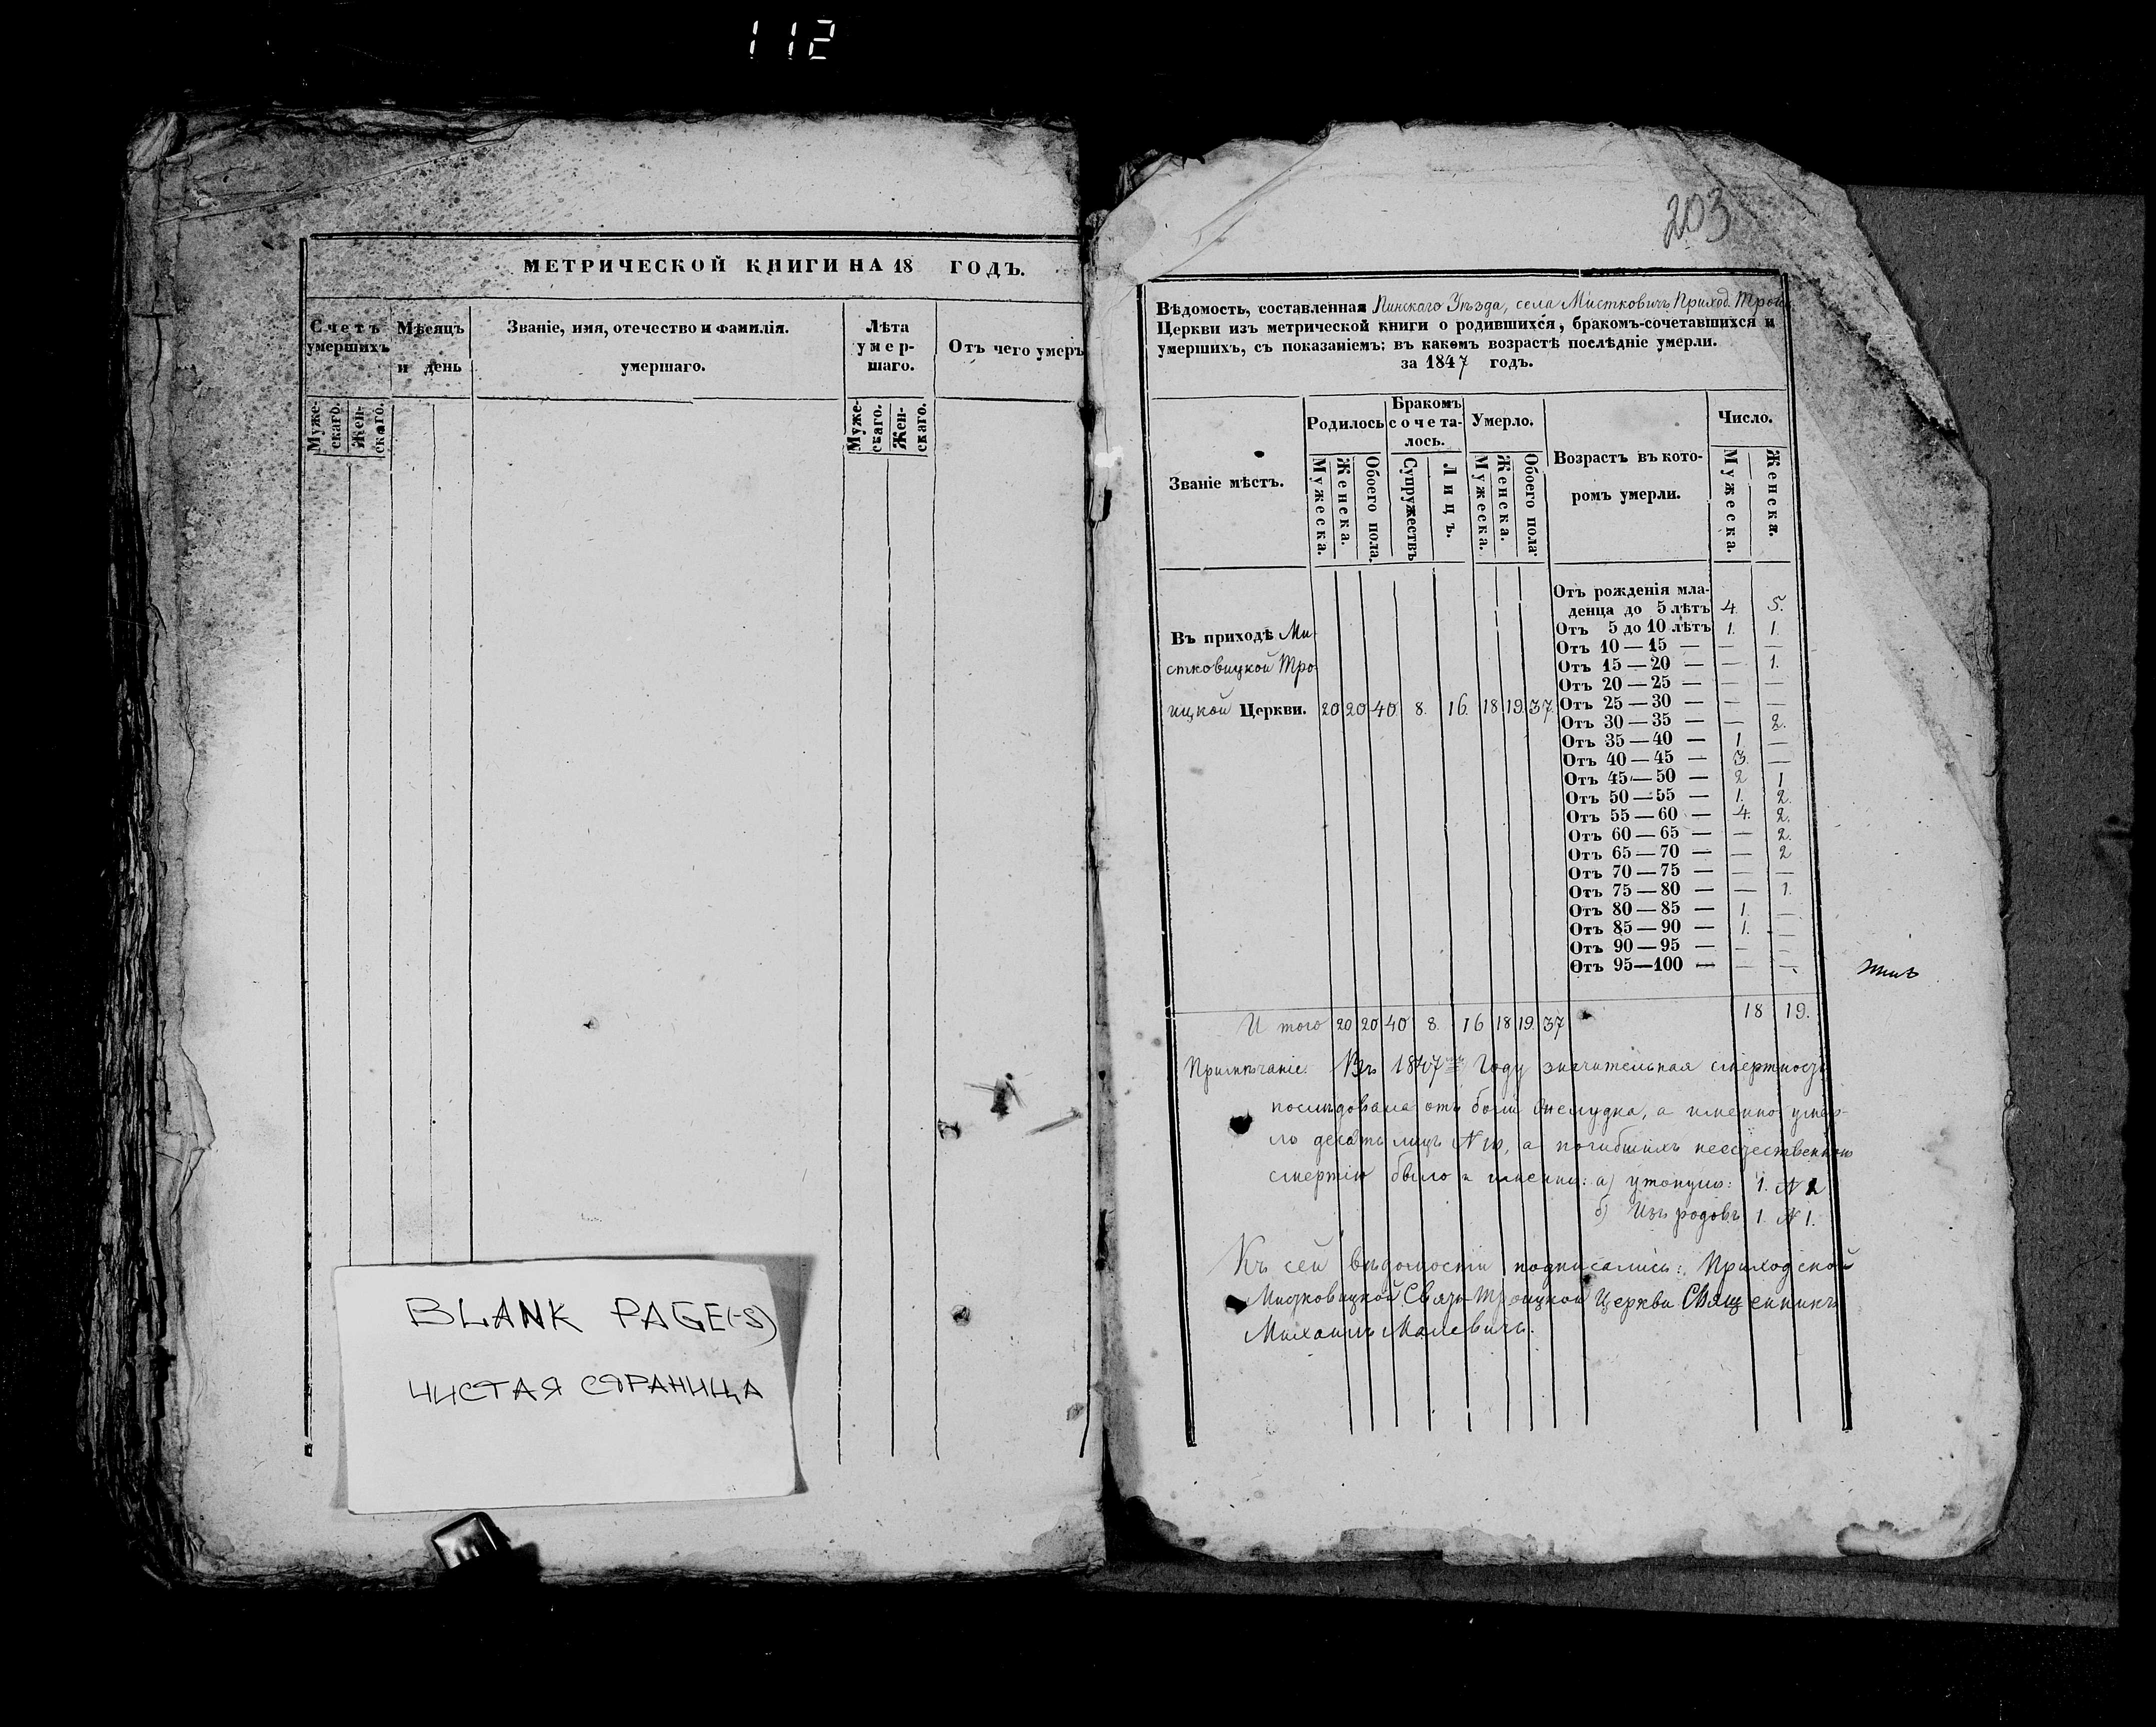 112
МЕТРИЧЕСКОЙ КНИГИ НА 18 ГОДЪ.
Счетъ умершихъ
Мѣсяцъ и день
Званіе, имя, отечество и фамилія. умершаго.
Лѣта умер- шаго.
Отъ чего умеръ
Муже- скаго.
Жен- скаго.
Муже- скаго.
Жен- скаго.
BLANK PAGE(-S)
ЧИСТАЯ СТРАНИЦА
203
Вѣдомость, составленная Пинского Уѣзда, села Мистковичъ Приход. Троиц.
Церкви изъ метрической книги о родившихся, бракомъ-сочетавшихся и
умершихъ, съ показаніемъ: въ какомъ возрастѣ послѣдніе умерли.
за 1847 годъ.
Званіе мѣстъ.
Родилось
Бракомъ сочета- лось.
Умерло.
Возрастъ въ кото- ромъ умерли.
Число.
Мужеска. Женска. Обоего пола. Супружествъ Лицъ. Мужеска. Женска. Обоего пола. Мужеска. Женска.
Отъ рожденія мла-
денца до 5 лѣтъ 4. 5.
Отъ 5 до 10 лѣтъ 1. 1.
Отъ 10 — 15 — — —
Отъ 15 — 20 — — 1.
Отъ 20 — 25 — — —
Отъ 25 — 30 — — —
Отъ 30 — 35 — — 2.
Отъ 35 — 40 — 1 —
Отъ 40 — 45 — 3. —
Отъ 45 — 50 — 2 1
Отъ 50 — 55 — 1. 2.
Отъ 55 — 60 — 4. 2.
Отъ 60 — 65 — — 2.
Отъ 65 — 70 — — 2
Отъ 70 — 75 — — —
Отъ 75 — 80 — — 1.
Отъ 80 — 85 — 1. —
Отъ 85 — 90 — 1. —
Отъ 90 — 95 — — —
Отъ 95—100 — — —
Въ приходѣ Ми-
стковицкой Тро-
ицкой Церкви. 20 20 40 8. 16. 18 19 37.
И того 20 20 40 8. 16 18 19. 37 18 19.
Примѣчаніе. Въ 1847мъ Году значительная смертность
послѣдовала отъ боли желудка, а именно умер-
ло десять лицъ N 10, а погибшихъ неестественною
смертію было а именно: а) утонуло: 1. N 2
б) Изъ родовъ 1. N 1.
Къ сей вѣдомости подписались: Приходской
Мистковицкой Свято-Троицкой Церкви Священникъ
Михаилъ Малевичъ.